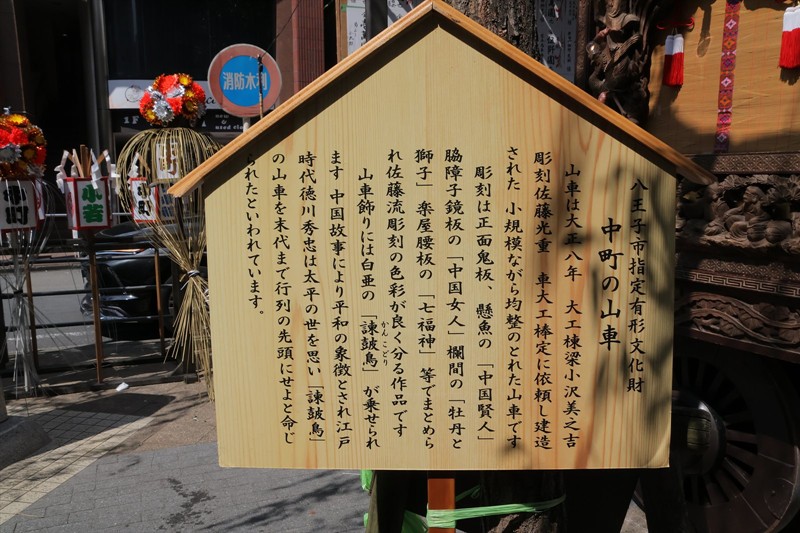 八王子市指定有形文化財
中町の山車
山車は大正八年　大工棟梁小沢美之吉
彫刻佐藤光重　車大工棒定に依頼し建造
された　小規模ながら均整のとれた山車です
彫刻は正面鬼板、懸魚の「中国賢人」
脇障子鏡板の「中国女人」欄間の「牡丹と
獅子」楽屋腰板の「七福神」等でまとめら
れ佐藤流彫刻の色彩が良く分る作品です
山車飾りには白亜の「諌皷鳥」が乗せられ
かんこどり
ます　中国故事により平和の象徴とされ江戸
時代徳川秀忠は太平の世を思い「諌皷鳥」
の山車を末代まで行列の先頭にせよと命じ
られたといわれています。
消防水利
小若